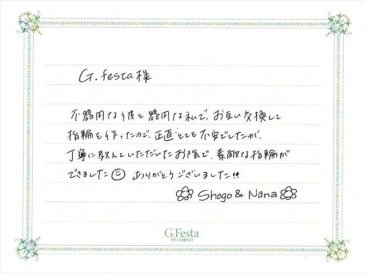 G.festa様
不器用な彼と器用な私で、お互い交換して
指輪を作ったので、正直とても不安でしたが、
丁寧に教えていただいたお陰で、素敵な指輪が
できました☺ ありがとうございました!!
Shogo & Nana
G.Festa
DIAMOND